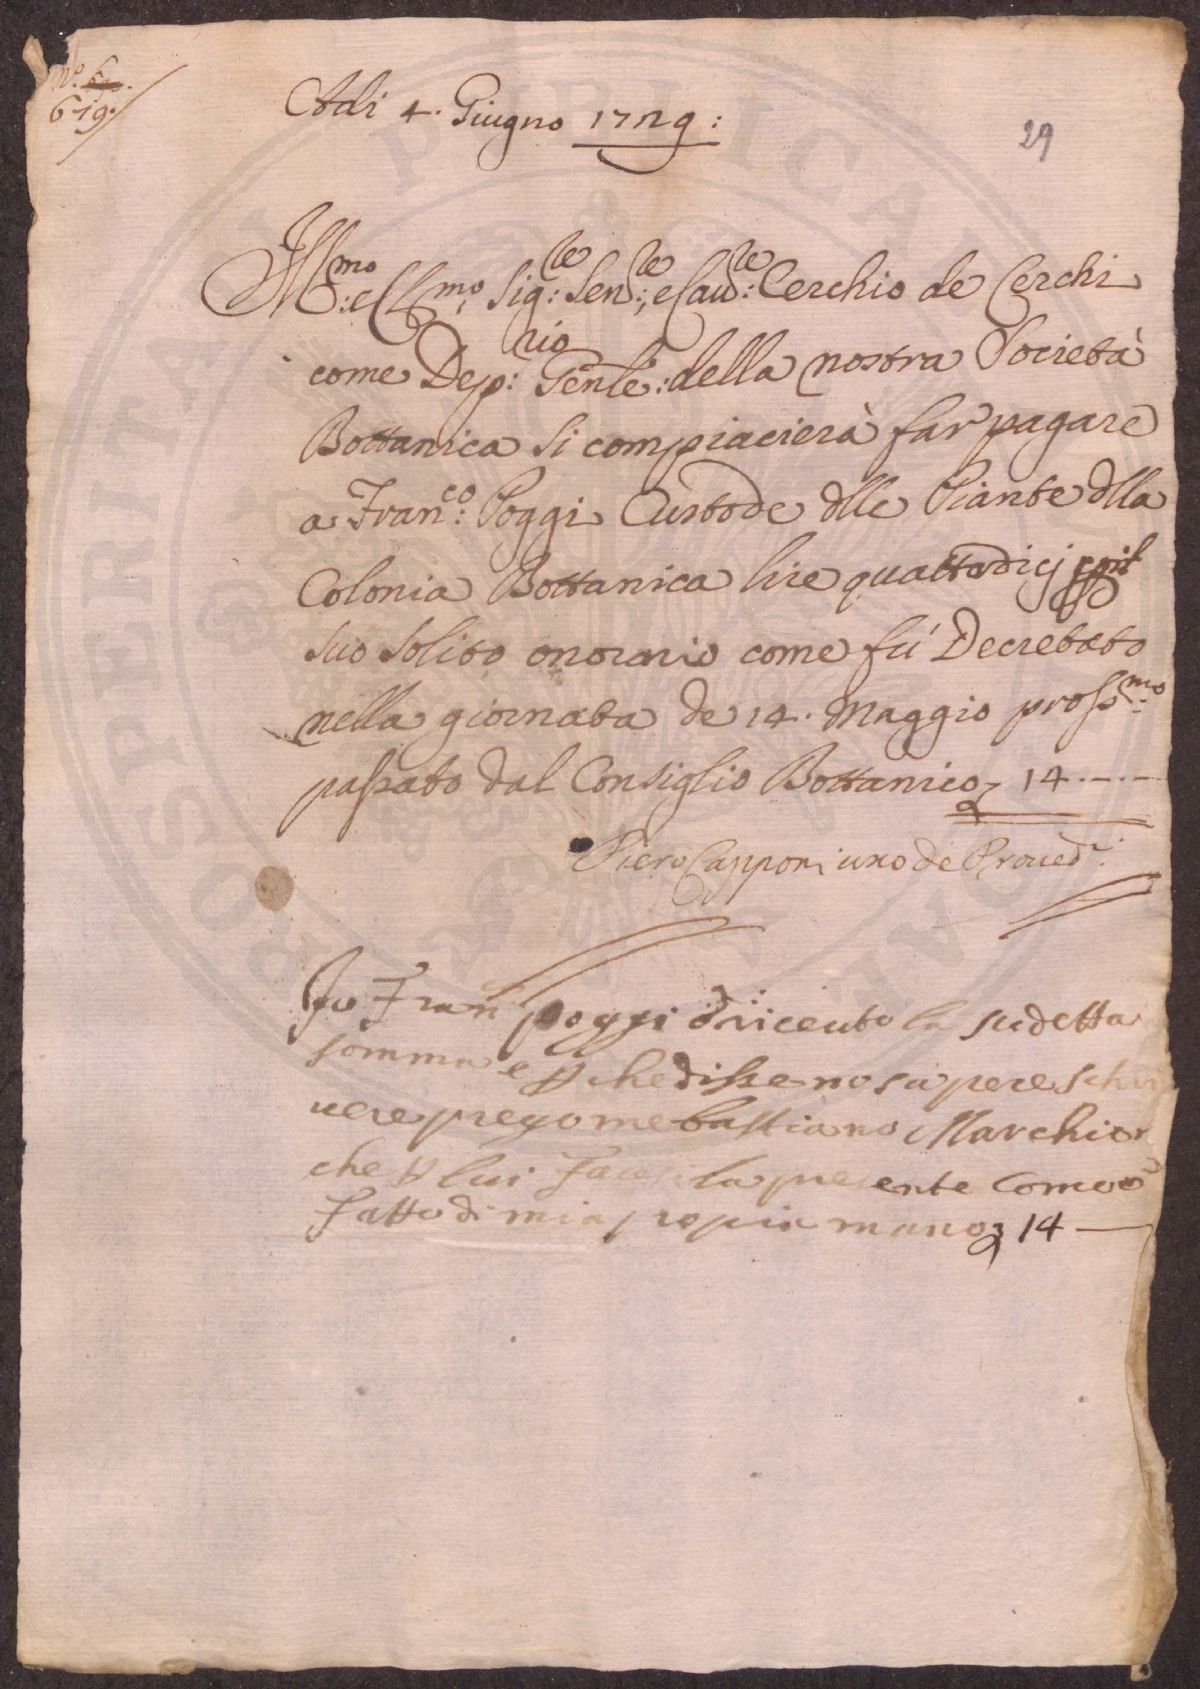 N.º 6
619.
Adi 4. Giugno 1729:
29
Ill.mo: e Cl.mo, Sig.re: Sen.re; e Cau.re: Cerchio de Cerchi
come Dep.rio: Genle: della nostra Società
Bottanica si compiacierà far pagare
a Fran.co: Poggi Custode dlle Piante dlla
Colonia Bottanica lire quattordicj p il
suo solito onorario come fú Decretato
nella giornata de 14. Maggio pross.mo
passato dal Consiglio Bottanico 14.-.-
Piero Capponi uno de Proued.ri
Io Fran Poggi ò riceuto la sudetta
somma e p che disse no sapere schri
uere prego me bastiano Marchior
che p lui facesi la presente Come ò
Fatto di mia propia mano 14 —
PUBLICAE
PROSPERITATI